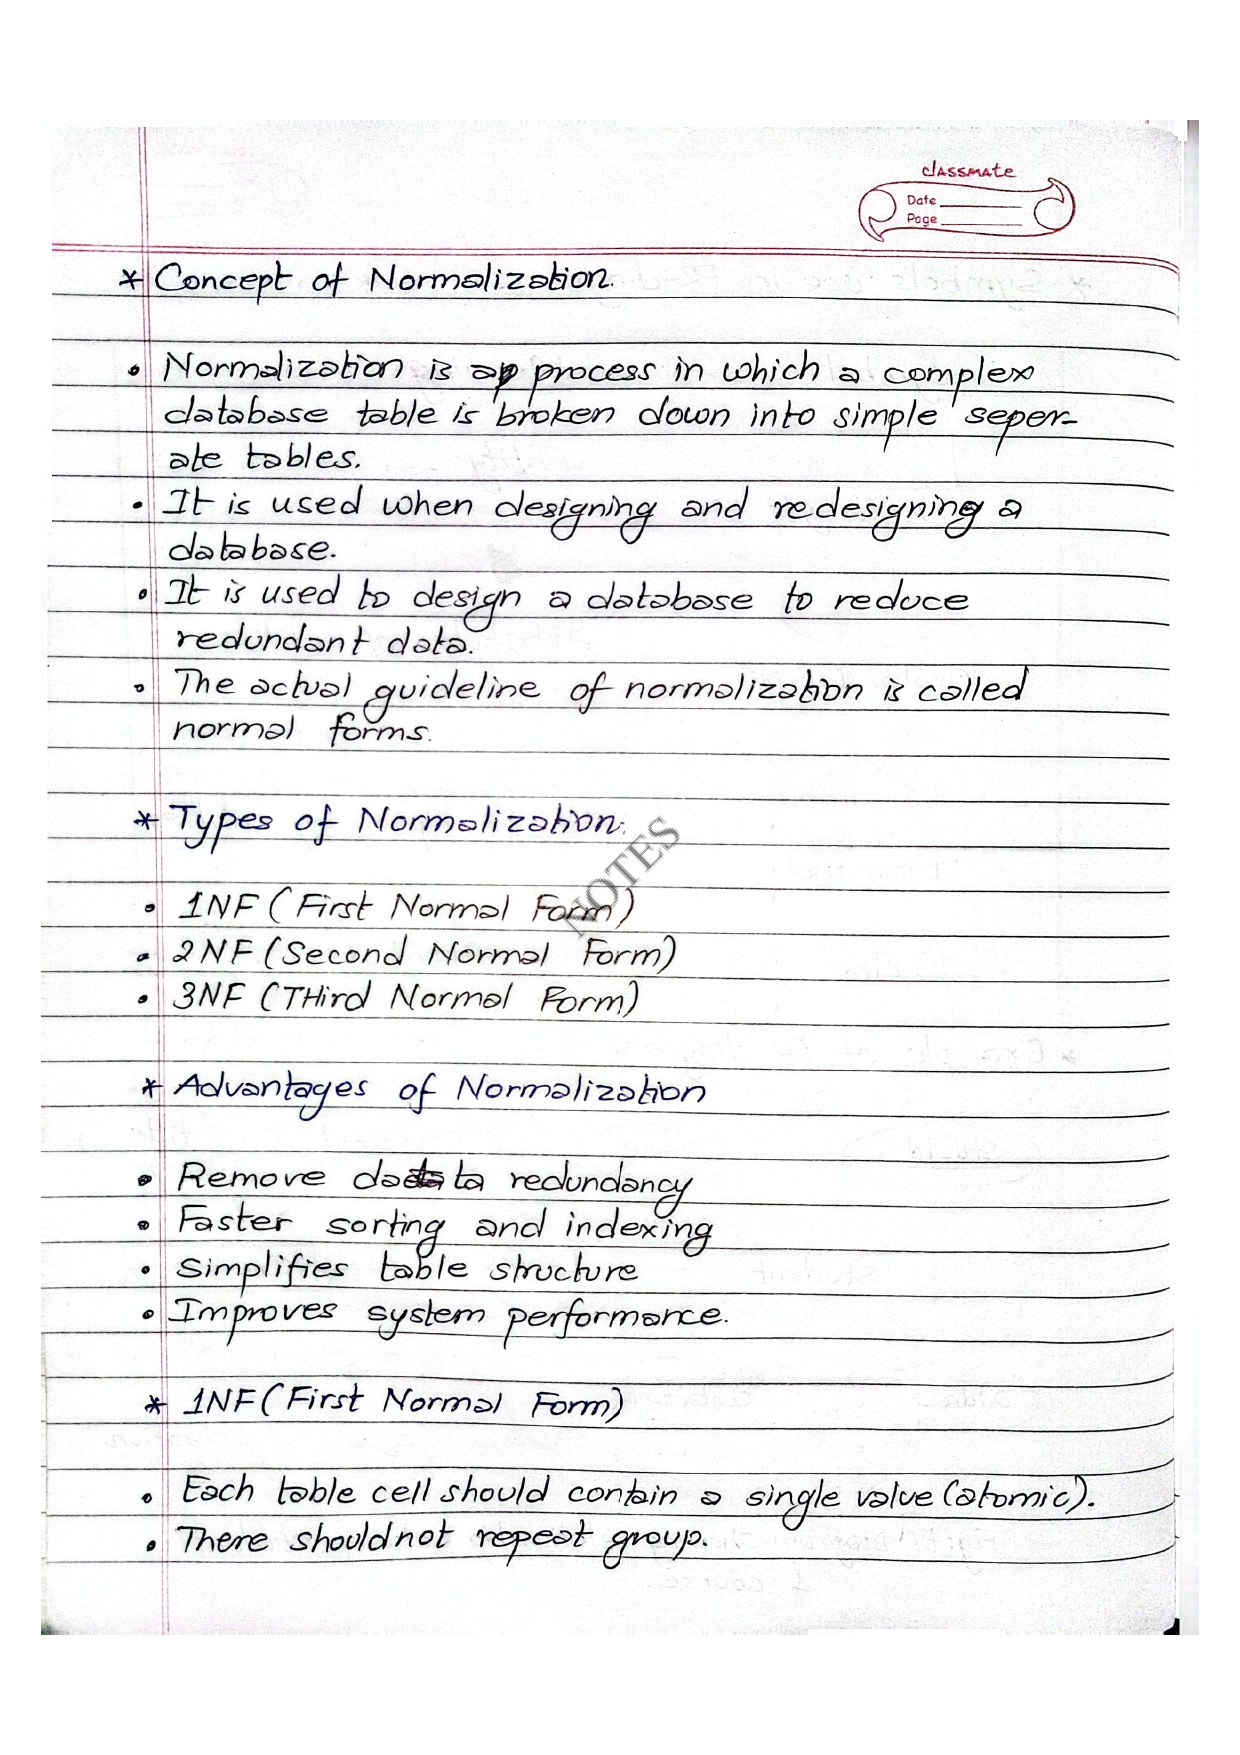 classmate
Date
Page
* Concept of Normalization.
• Normalization is a process in which a complex
database table is broken down into simple seper-
ate tables.
• It is used when designing and redesigning a
database.
• It is used to design a database to reduce
redundant data.
• The actual guideline of normalization is called
normal forms.
* Types of Normalization.
NOTES
• 1NF (First Normal Form)
• 2NF (Second Normal Form)
• 3NF (THird Normal Form)
* Advantages of Normalization
• Remove data redundancy
• Faster sorting and indexing
• Simplifies table structure
• Improves system performance.
* 1NF (First Normal Form)
• Each table cell should contain a single value (atomic).
• There should not repeat group.